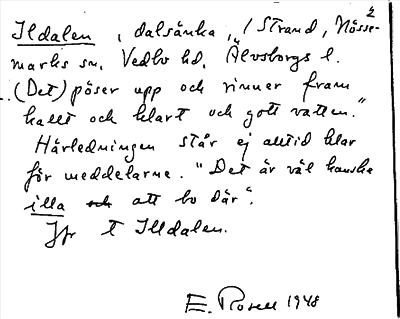 2
Ildalen, dalsänka, / Strand, Nösse-
marks sn, Vedbo hd, Älvsborgs l.
(Det) pöser upp och rinner fram
kallt och klart och gott vatten."
Härledningen står ej alltid klar
för meddelarne. "Det är väl kanske
illa och att bo där".
Jfr t Illdalen.
E. Rosell 1948